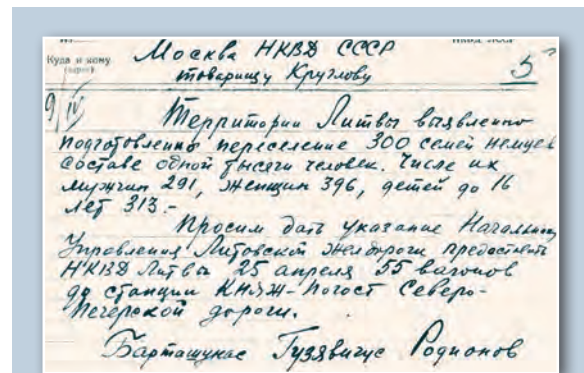 Куда и кому
(адрес)
Москва НКВД СССР
товарищу Круглову
5
9/IV
Территории Литвы выявленно
подготовленно переселение 300 семей немцев
составе одной тысячи человек. Числе их
мужчин 291, женщин 396, детей до 16
лет 313.-
Просим дать указание Начальнику
Управления Литовской желдороги предоставить
НКВД Литвы 25 апреля 55 вагонов
до станции КНЯЖ-Погост Северо-
Печерской дороги.
Барташунас Гузявичус Родионов